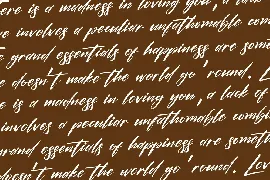 ere is a madness in loving you, a lack
e involves a peculiar unfathomable combi
grand essentials of happiness are some
e doesn't make the world go 'round. L
e is a madness in loving you, a lack of
involves a peculiar unfathomable combi
grand essentials of happiness are someth
e doesn't make the world go 'round. Lov